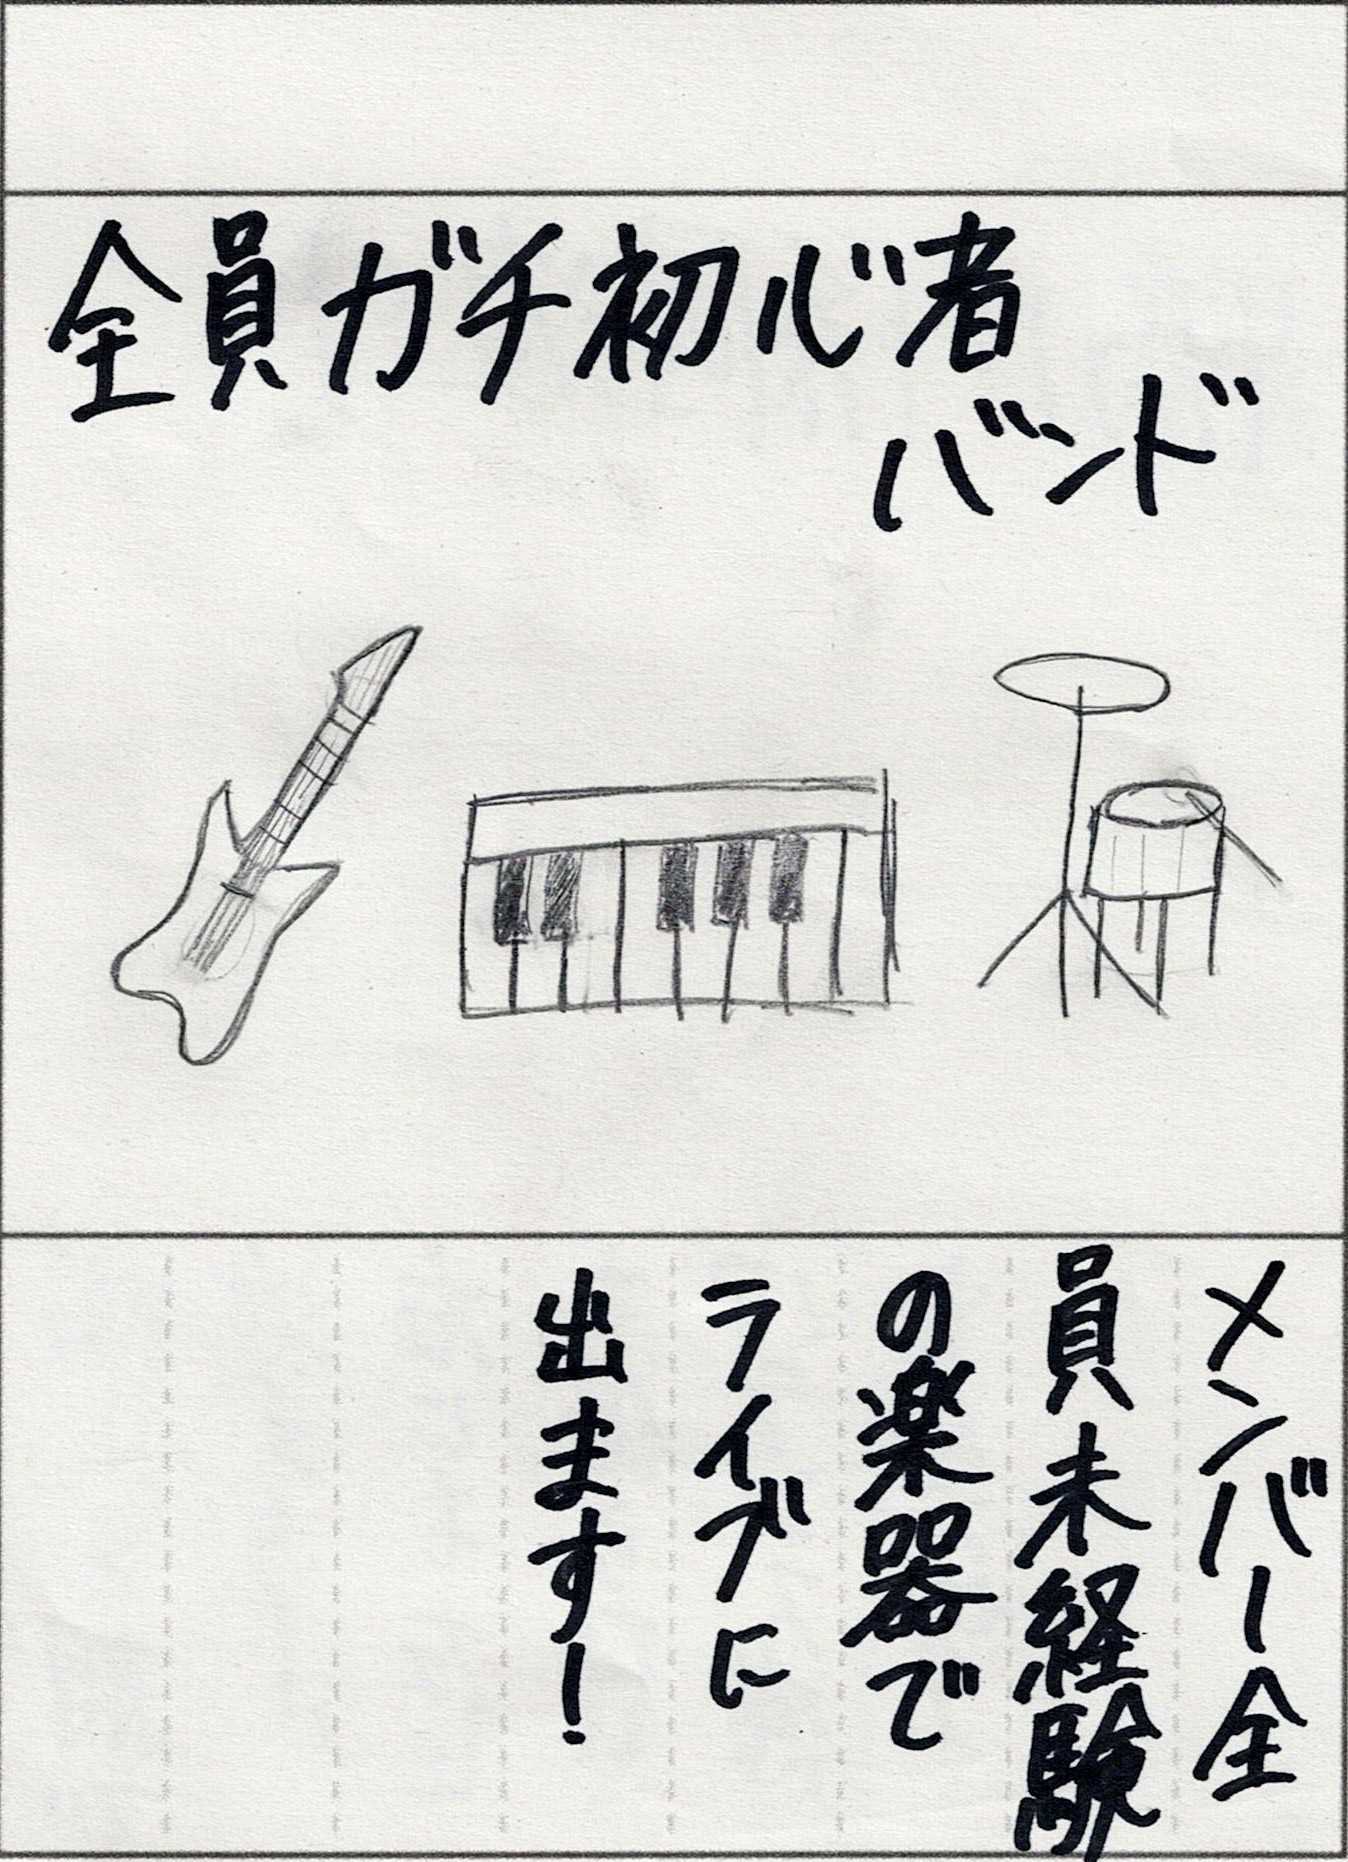 全員ガチ初心者
バンド
メンバー全
員未経験
の楽器で
ライブに
出ます!